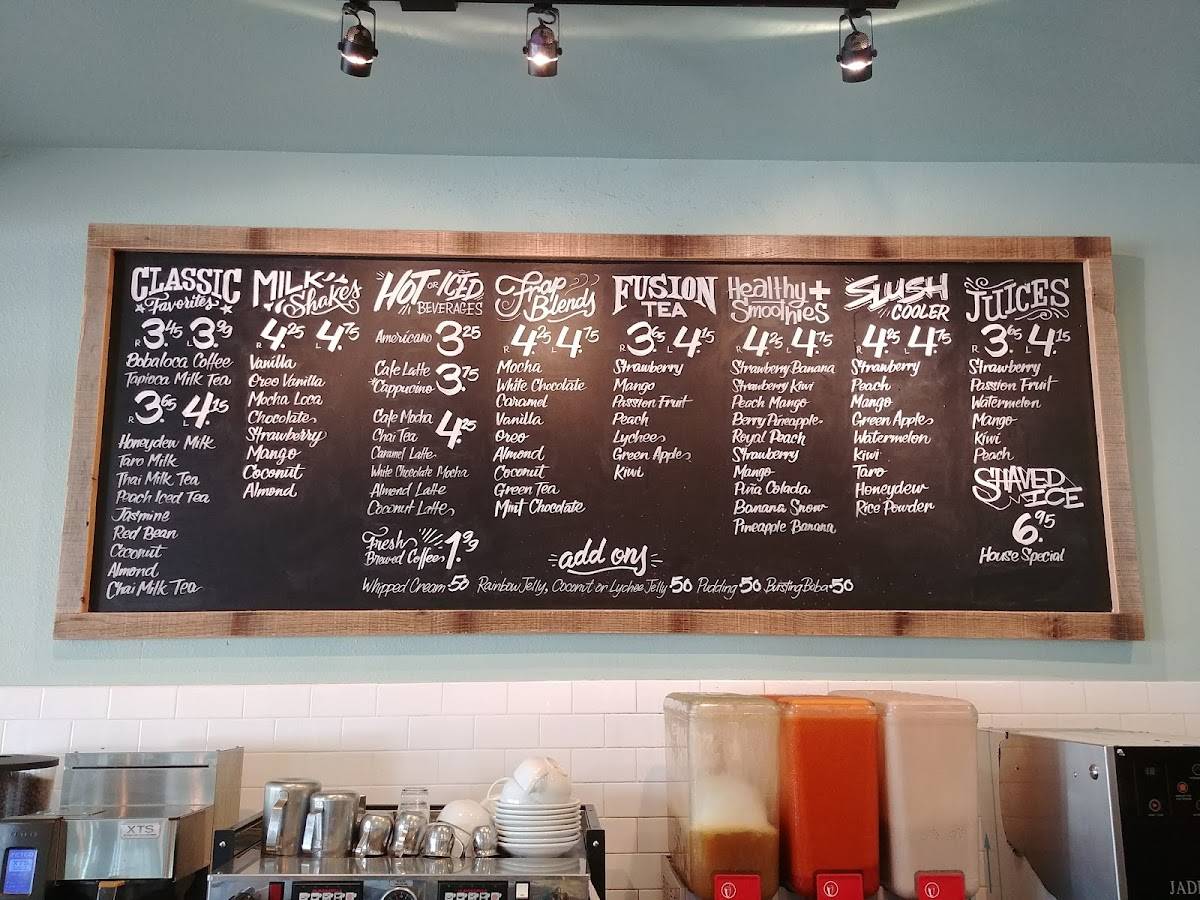 CLASSIC
Favorites
R 3.45 L 3.99
Bobaloca Coffee
Tapioca Milk Tea
R 3.65 L 4.15
Honeydew Milk
Taro Milk
Thai Milk Tea
Peach Iced Tea
Jasmine
Red Bean
Coconut
Almond
Chai Milk Tea
MILK
Shakes
R 4.25 L 4.75
Vanilla
Oreo Vanilla
Mocha Loca
Chocolate
Strawberry
Mango
Coconut
Almond
HOT OR ICED
BEVERAGES
Americano 3.25
Cafe Latte
Cappucino 3.75
Cafe Mocha
Chai Tea 4.25
Caramel Latte
White Chocolate Mocha
Almond Latte
Coconut Latte
Fresh
Brewed Coffee 1.99
Frap
Blends
R 4.25 L 4.75
Mocha
White Chocolate
Caramel
Vanilla
Oreo
Almond
Coconut
Green Tea
Mint Chocolate
FUSION
TEA
R 3.65 L 4.15
Strawberry
Mango
Passion Fruit
Peach
Lychee
Green Apple
Kiwi
Healthy +
Smoothies
R 4.25 L 4.75
Strawberry Banana
Strawberry Kiwi
Peach Mango
Berry Pineapple
Royal Peach
Strawberry
Mango
Piña Colada
Banana Snow
Pineapple Banana
SLUSH
COOLER
R 4.25 L 4.75
Strawberry
Peach
Mango
Green Apple
Watermelon
Kiwi
Taro
Honeydew
Rice Powder
JUICES
R 3.65 L 4.15
Strawberry
Passion Fruit
Watermelon
Mango
Kiwi
Peach
SHAVED
ICE
6.95
House Special
add ons
Whipped Cream 50 Rainbow Jelly, Coconut or Lychee Jelly 50 Pudding 50 Bursting Boba 50
XTS